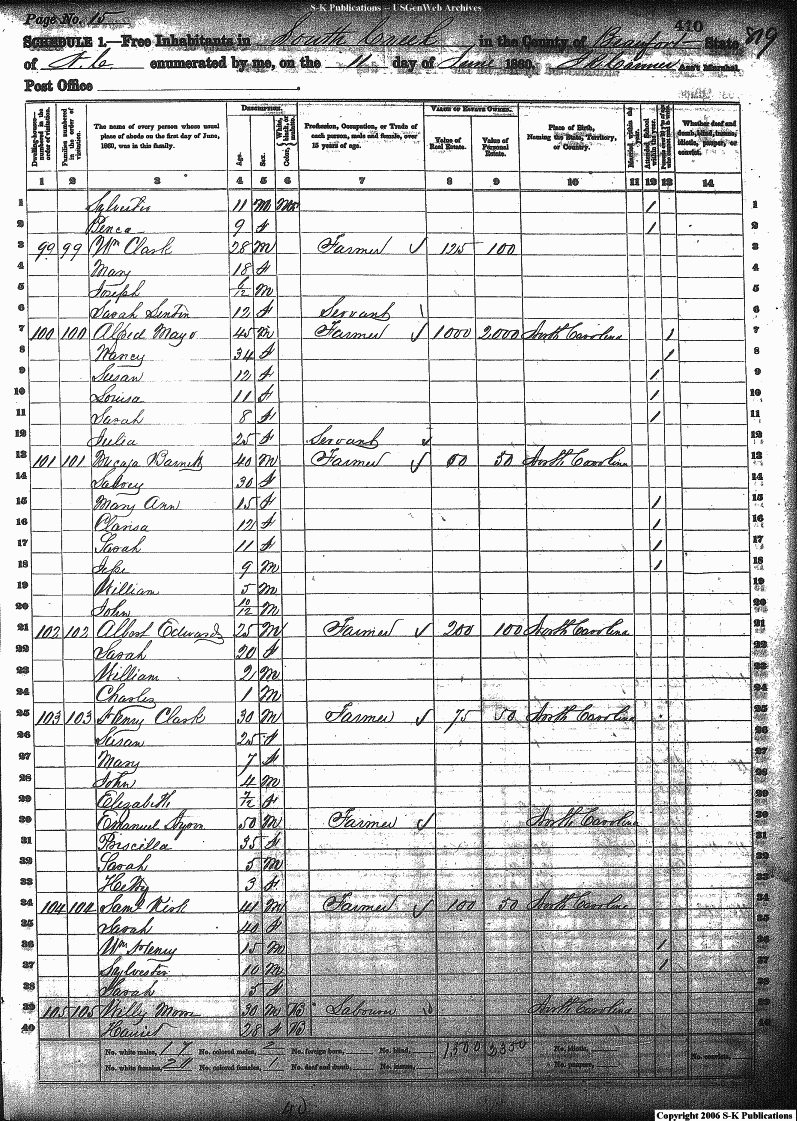 S-K Publications – USGenWeb Archives
Page No. 15
410
819
SCHEDULE 1.—Free Inhabitants in South Creek in the County of Beaufort State
of N. C enumerated by me, on the 11 day of June 1860. Ass't Marshal.
Post Office
Dwelling-houses numbered in the order of visitation.
Families numbered in the order of visitation.
The name of every person whose usual place of abode on the first day of June, 1860, was in this family.
DESCRIPTION.
Age.
Sex.
Color, White, black, or mulatto.
Profession, Occupation, or Trade of each person, male and female, over 15 years of age.
VALUE OF ESTATE OWNED.
Value of Real Estate.
Value of Personal Estate.
Place of Birth, Naming the State, Territory, or Country.
Married within the year.
Attended School within the year.
Whether deaf and dumb, blind, insane, idiotic, pauper, or convict.
1 2 3 4 5 6 7 8 9 10 11 12 13 14
1 Sylvester 11 M / 1
2 9 f / 2
3 99 99 Wm Clark 28 M Farmer 125 100 3
4 Mary 18 f 4
5 Joseph 6/12 M 5
6 Sarah 12 f Servant 6
7 100 100 Alfred Mayo 45 M Farmer 1000 2000 North Carolina / 7
8 Nancy 34 f / 8
9 Susan 12 f / 9
10 Louisa 11 f / 10
11 Sarah 8 f / 11
12 Julia 25 f Servant 12
13 101 101 40 M Farmer 50 North Carolina 13
14 30 f 14
15 Mary Ann 15 f / 15
16 Clarisa 12 f / 16
17 Sarah 11 f / 17
18 Jesse 9 M / 18
19 William 5 M 19
20 John 10/12 M 20
21 102 102 Albert Edwards 25 M Farmer 200 100 North Carolina 21
22 Sarah 20 f 22
23 William 2 M 23
24 Charles 1 M 24
25 103 103 Henry Clark 30 M Farmer 75 50 North Carolina 25
26 Susan 25 f 26
27 Mary 7 f 27
28 John 4 M 28
29 Elizabeth 7/12 f 29
30 Emanuel 50 M Farmer North Carolina 30
31 Priscilla 35 f 31
32 Sarah 5 M 32
33 Hetty 3 f 33
34 104 104 Saml 41 M Farmer 100 50 North Carolina 34
35 Sarah 40 f 35
36 Wm Henry 15 M / 36
37 Sylvester 10 M / 37
38 Sarah 5 f 38
39 105 105 Willy Moore 30 M B Labourer North Carolina 39
40 Harriet 28 f B 40
No. white males, 17 No. colored males, 2 No. foreign born, No. blind, 1,500 2350 No. idiotic,
No. white females, No. colored females, 1 No. deaf and dumb, No. insane, No. paupers, No. convicts,
Copyright 2006 S-K Publications